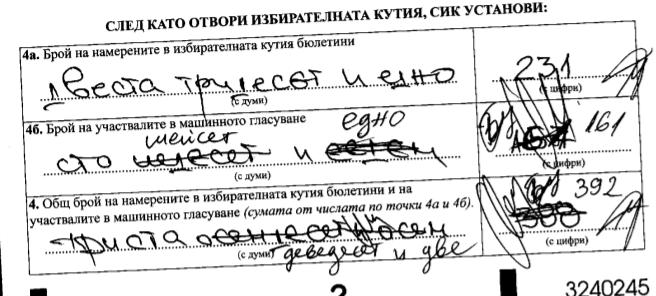 СЛЕД КАТО ОТВОРИ ИЗБИРАТЕЛНАТА КУТИЯ, СИК УСТАНОВИ:
4а. Брой на намерените в избирателната кутия бюлетини
двеста тридесет и едно 231
(с думи) (с цифри)
4б. Брой на участвалите в машинното гласуване
шейсет едно
сто и 161
(с думи) (с цифри)
4. Общ брой на намерените в избирателната кутия бюлетини и на
участвалите в машинното гласуване (сумата от числата по точки 4а и 4б).
392
триста
(с думи) деведесет и две (с цифри)
2
3240245